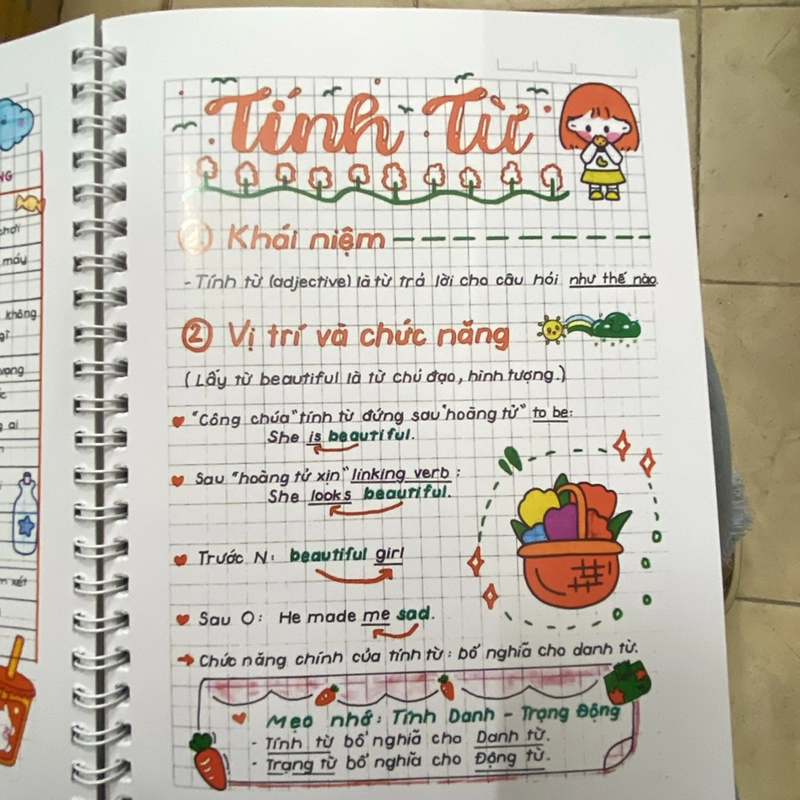 Tính Từ
① Khái niệm
- Tính từ (adjective) là từ trả lời cho câu hỏi như thế nào.
② Vị trí và chức năng
(Lấy từ beautiful là từ chủ đạo, hình tượng.)
"Công chúa" tính từ đứng sau "hoàng tử" to be:
She is beautiful.
Sau "hoàng tử xịn" linking verb:
She looks beautiful.
Trước N: beautiful girl
Sau O: He made me sad.
→ Chức năng chính của tính từ: bổ nghĩa cho danh từ.
Mẹo nhớ: Tính Danh - Trạng Động
- Tính từ bổ nghĩa cho Danh từ.
- Trạng từ bổ nghĩa cho Động từ.